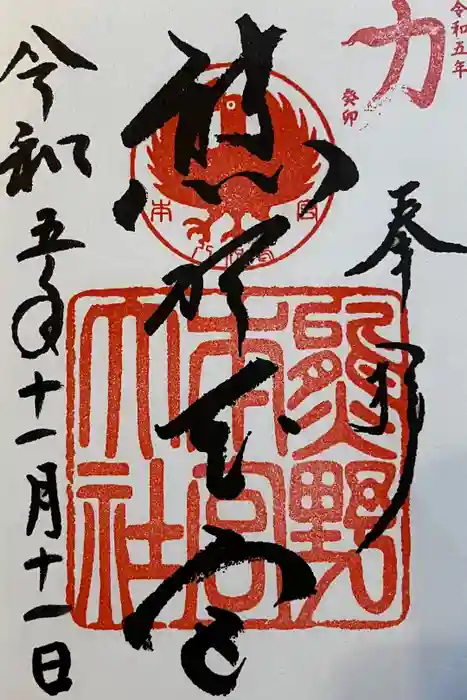 力
令和五年
癸卯
奉拝
熊野本宮
熊野
本宮
大社
本宮
令和五年十一月十一日